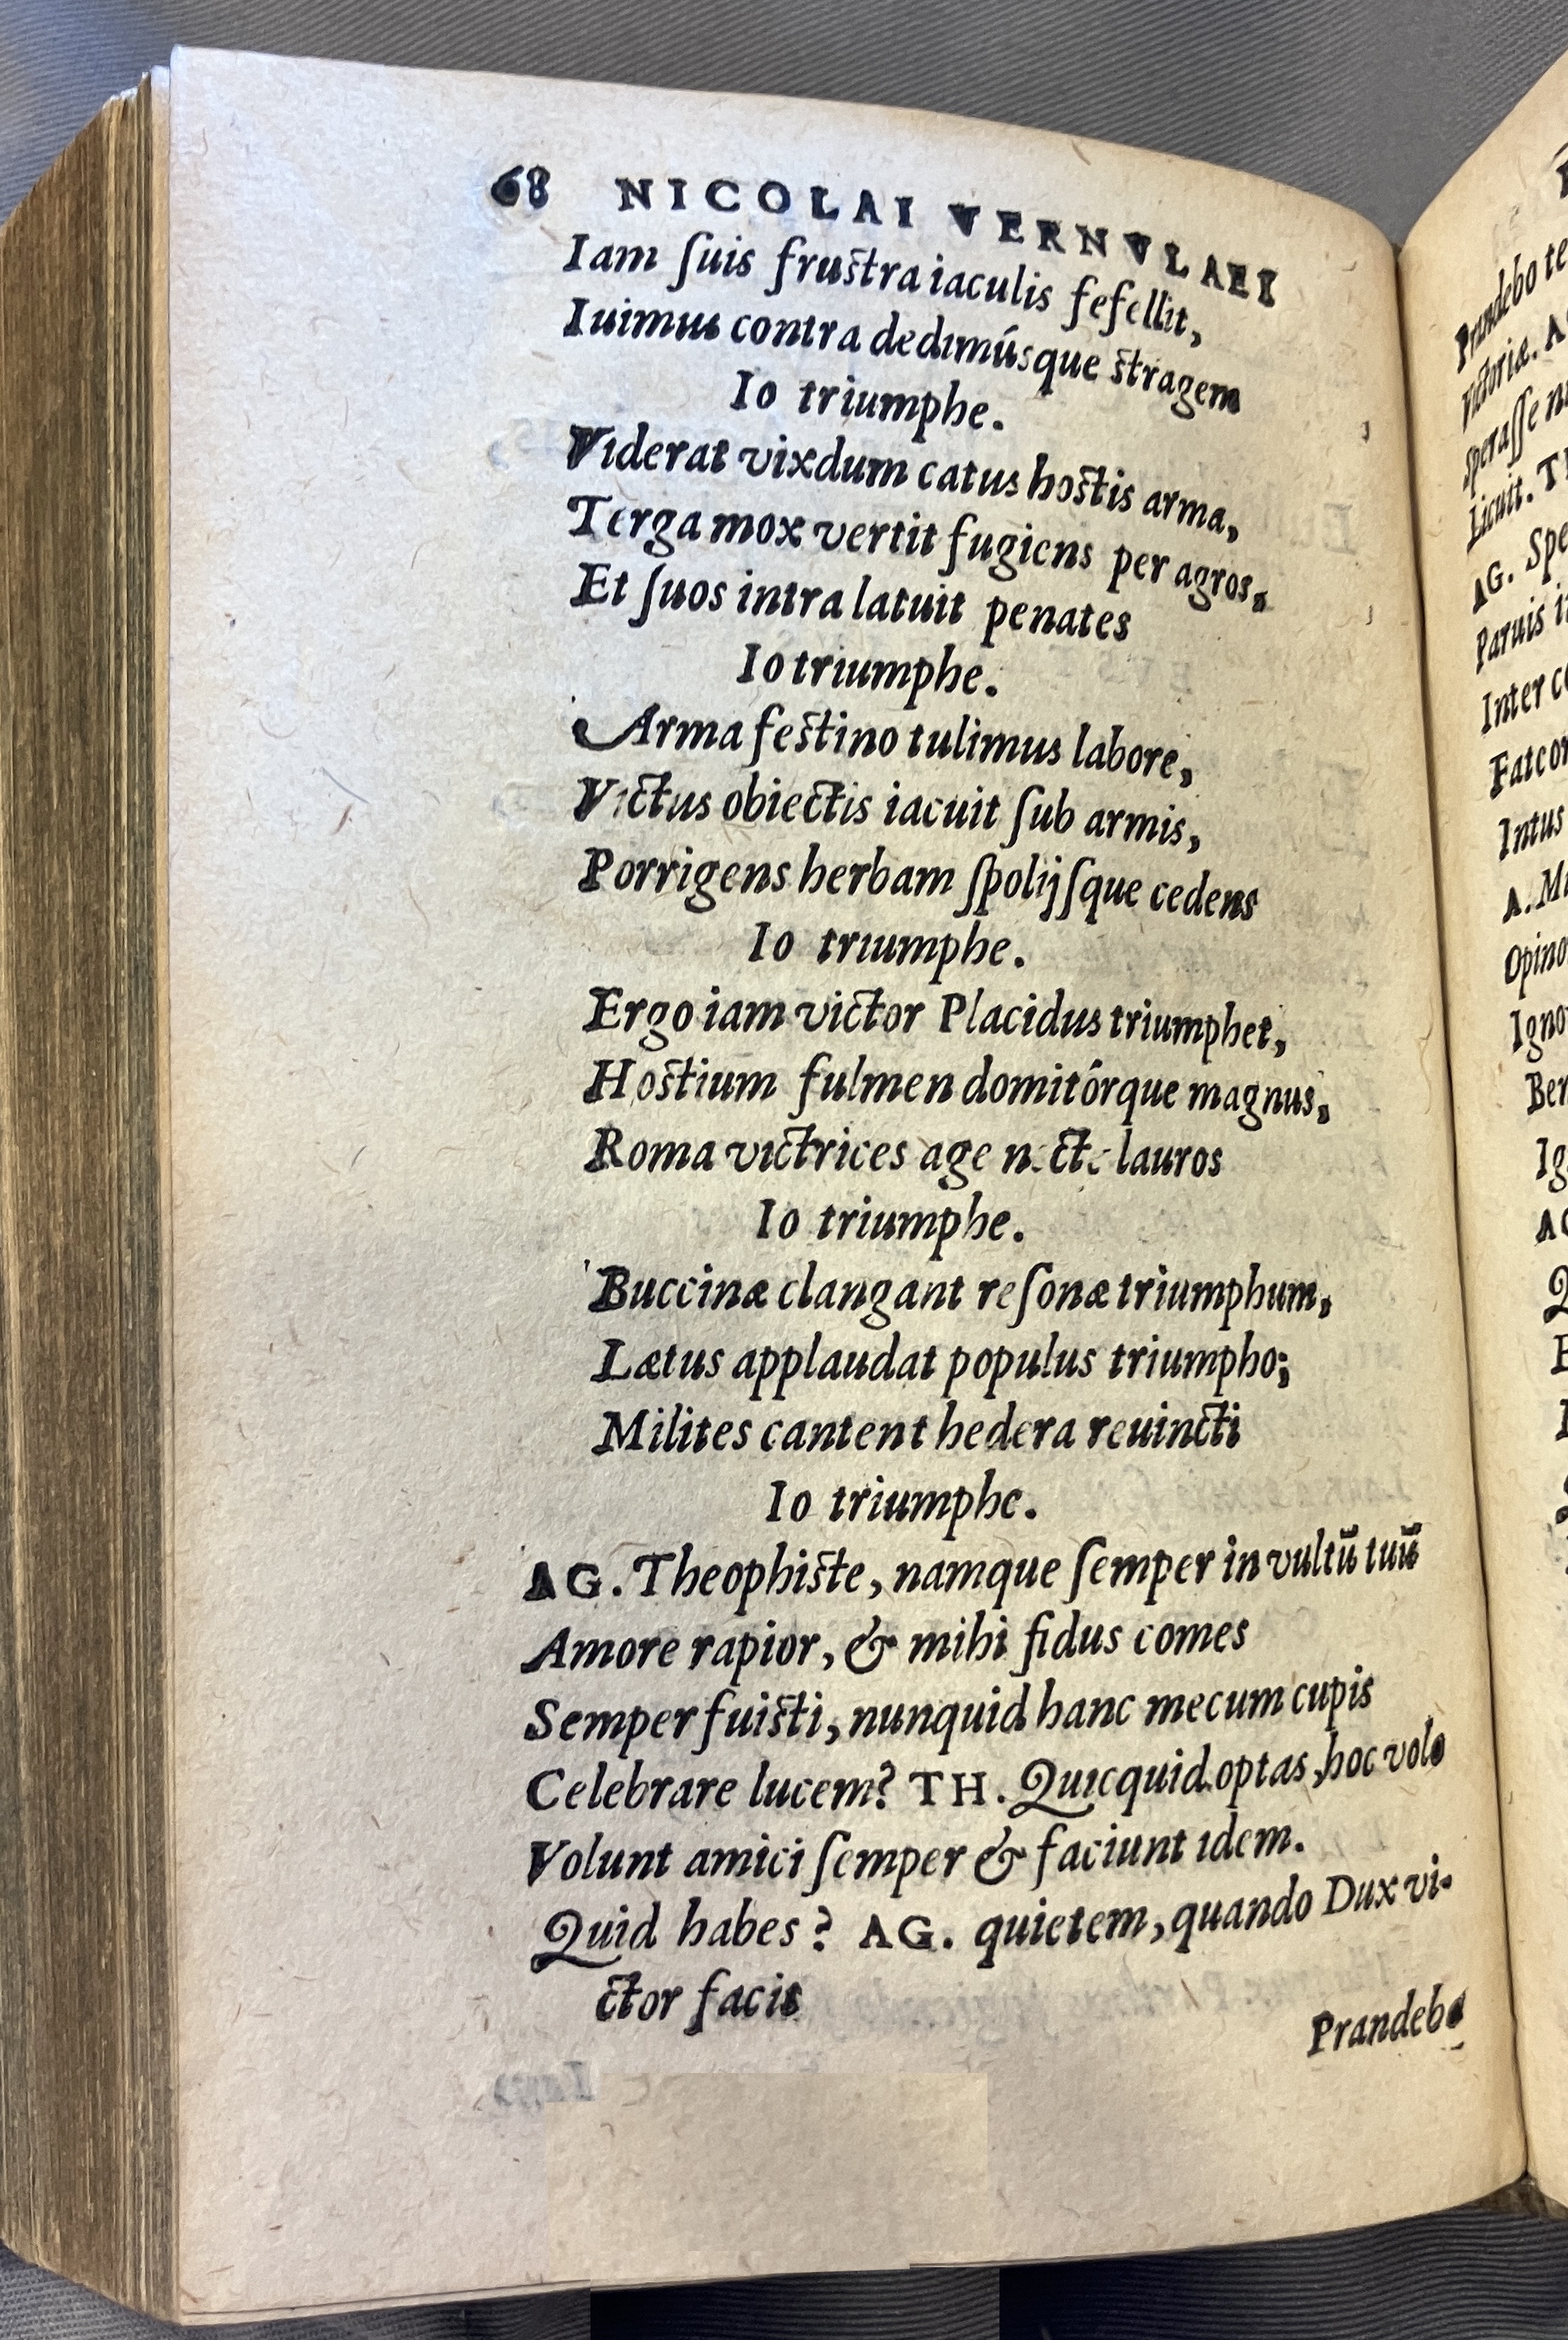 68 NICOLAI VERNVLAEI
Iam ſuis fruſtra iaculis fefellit,
Iuimus contra dedimúsque ſtragem
Io triumphe.
Viderat vixdum catus hoſtis arma,
Terga mox vertit fugiens per agros,
Et ſuos intra latuit penates
Io triumphe.
Arma feſtino tulimus labore,
Victus obiectis iacuit ſub armis,
Porrigens herbam ſpolijſque cedens
Io triumphe.
Ergo iam victor Placidus triumphet,
Hoſtium fulmen domitórque magnus,
Roma victrices age necte lauros
Io triumphe.
Buccinæ clangant reſonæ triumphum,
Lætus applaudat populus triumpho;
Milites cantent hedera reuincti
Io triumphe.
AG. Theophiſte, namque ſemper in vultū tuū
Amore rapior, & mihi fidus comes
Semper fuiſti, nunquid hanc mecum cupis
Celebrare lucem? TH. Quicquid optas, hoc volo
Volunt amici ſemper & faciunt idem.
Quid habes? AG. quietem, quando Dux vi-
ctor facit
Prandebo
Prandebo
victoriæ.
ſperaſſe
Licuit.
AG.
Paruis
Inter
Intus
A.